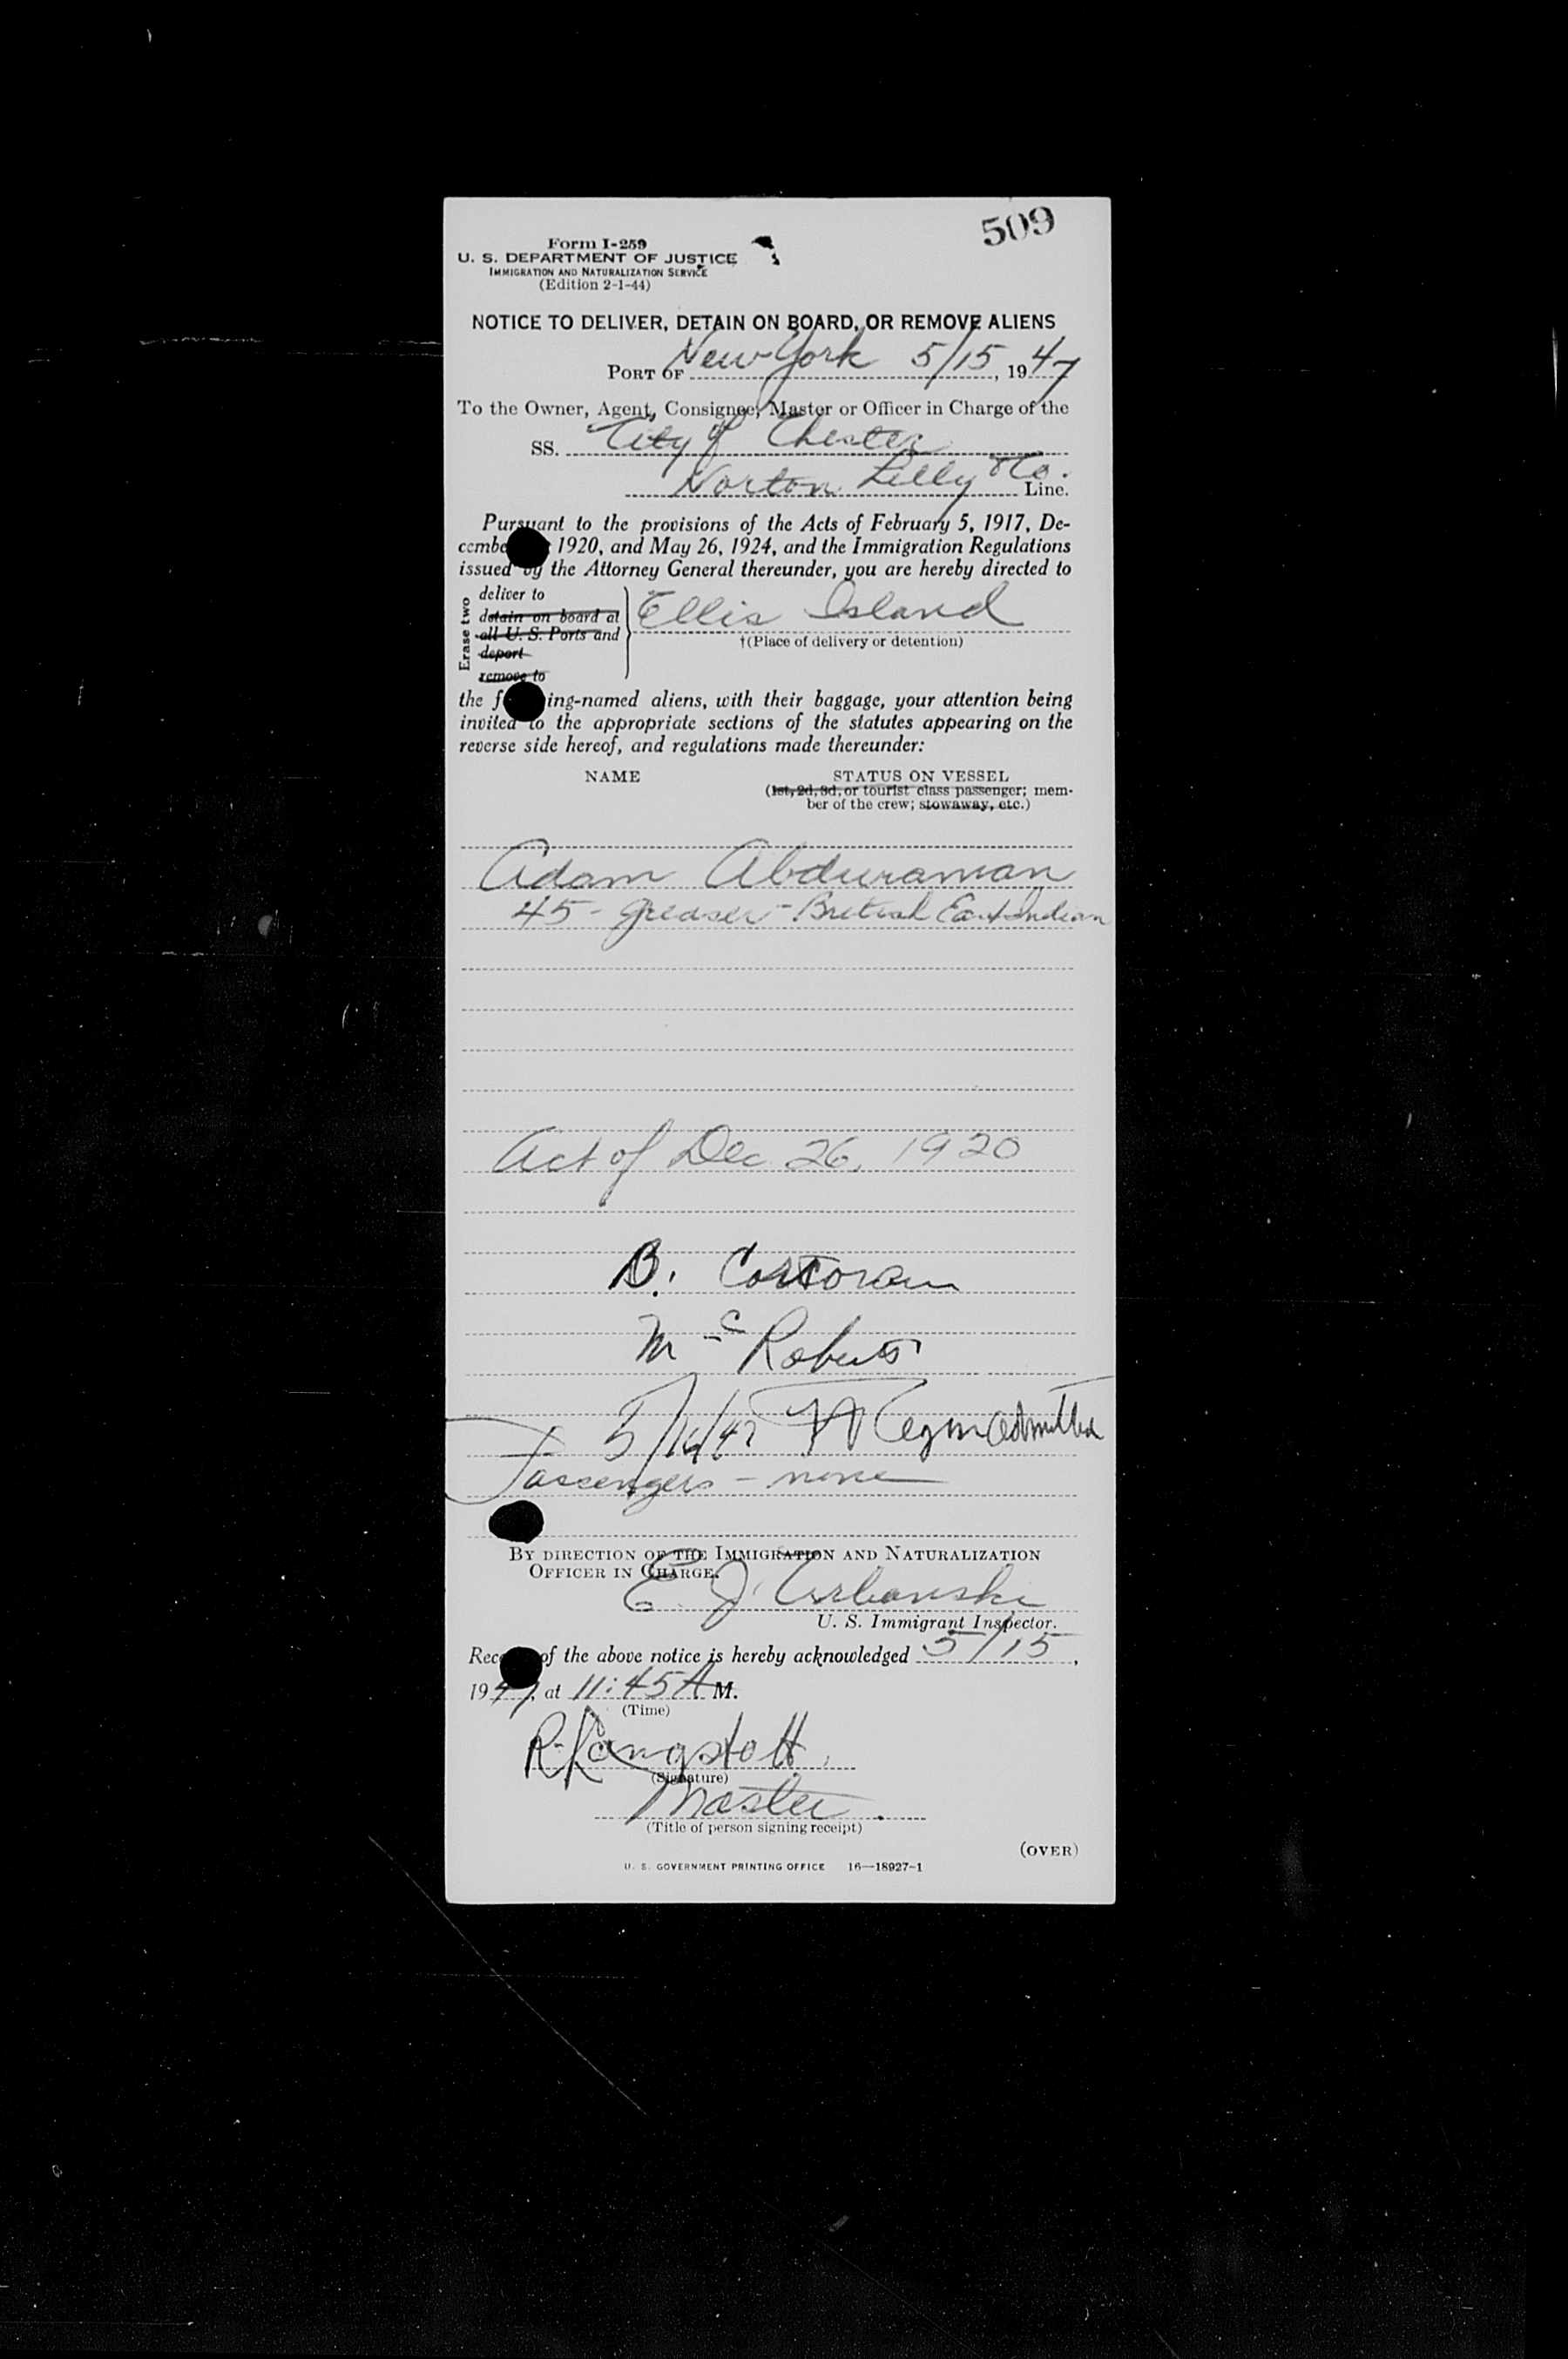 509
Form I-259
U. S. DEPARTMENT OF JUSTICE
IMMIGRATION AND NATURALIZATION SERVICE
(Edition 2-1-44)
NOTICE TO DELIVER, DETAIN ON BOARD, OR REMOVE ALIENS
PORT OF New York 5/15, 1947
To the Owner, Agent, Consignee, Master or Officer in Charge of the
SS. City of Chester
Norton Lilly & Co. Line.
Pursuant to the provisions of the Acts of February 5, 1917, De-
cembe 1920, and May 26, 1924, and the Immigration Regulations
issued by the Attorney General thereunder, you are hereby directed to
Erase two
deliver to
detain on board at
all U. S. Ports and
deport
remove to
Ellis Island
†(Place of delivery or detention)
the f ing-named aliens, with their baggage, your attention being
invited to the appropriate sections of the statutes appearing on the
reverse side hereof, and regulations made thereunder:
NAME STATUS ON VESSEL
(1st, 2d, 3d, or tourist class passenger; mem-
ber of the crew; stowaway, etc.)
Adam Abduraman
45 - greaser - British East Indian
Act of Dec 26, 1920
B. Corcoran
Mc Roberts
5/16/47 admitted
Passengers - none
BY DIRECTION OF THE IMMIGRATION AND NATURALIZATION
OFFICER IN CHARGE.
E. J. Urbanski
U. S. Immigrant Inspector.
Rec of the above notice is hereby acknowledged 5/15,
1947, at 11:45 A M.
(Time)
R. Langstott
(Signature)
Master.
(Title of person signing receipt)
(OVER)
U. S. GOVERNMENT PRINTING OFFICE 16—18927-1